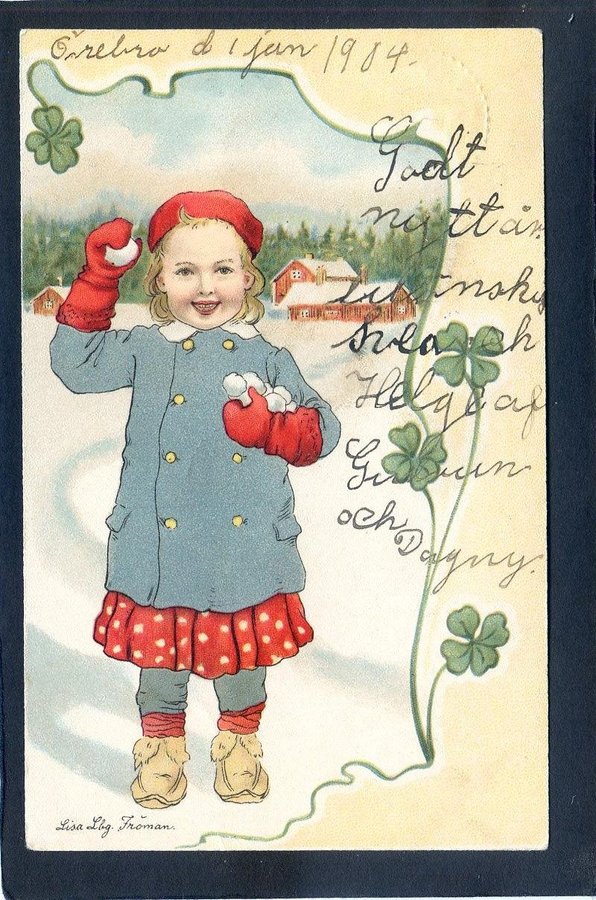 Örebro d 1 jan 1904.
Godt
nytt år
tillönskas
Svea och
Helge af
Gudrun
och
Dagny.
Lisa Lbg. Fröman.